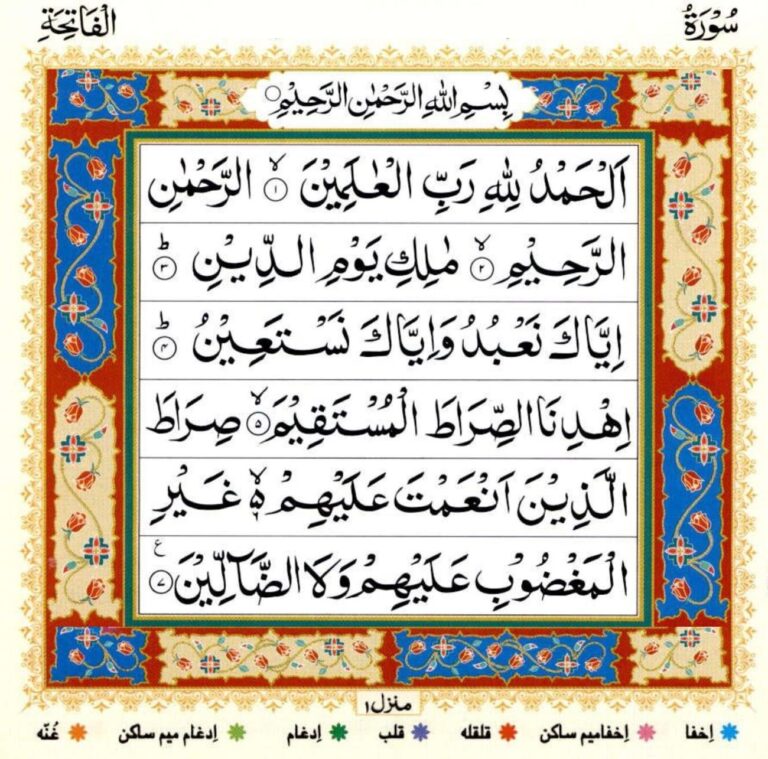 سُوْرَةُ الْفَاتِحَةِ
بِسْمِ اللّٰهِ الرَّحْمٰنِ الرَّحِيْمِ
اَلْحَمْدُ لِلّٰهِ رَبِّ الْعٰلَمِيْنَ ۙ۝۱ الرَّحْمٰنِ
الرَّحِيْمِ ۙ۝۲ مٰلِكِ يَوْمِ الدِّيْنِ ؕ۝۳
اِيَّاكَ نَعْبُدُ وَاِيَّاكَ نَسْتَعِيْنُ ؕ۝۴
اِهْدِنَا الصِّرَاطَ الْمُسْتَقِيْمَ ۙ۝۵ صِرَاطَ
الَّذِيْنَ اَنْعَمْتَ عَلَيْهِمْ ۙ۬ۦ غَيْرِ
الْمَغْضُوْبِ عَلَيْهِمْ وَلَا الضَّآلِّيْنَ ۝۷ ع
منزل۱
اِخفا اِخفامیم ساکن قلقله قلب اِدغام اِدغام میم ساکن غُنّه